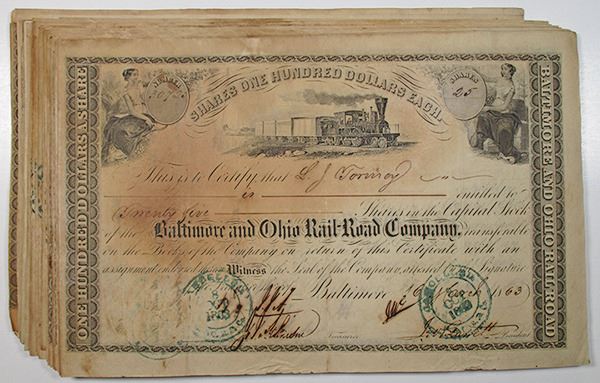 SHARES
SHARES ONE HUNDRED DOLLARS EACH.
SHARES
25
ONE HUNDRED DOLLARS A SHARE
BALTIMORE AND OHIO RAILROAD
This is to Certify that L J Tormey
is entitled to
Twenty five Shares in the Capital Stock
of the Baltimore and Ohio Rail-Road Company, transferable
on the Books of the Company on return of this Certificate with an
assignment endorsed hereon Witness the Seal of the Company, attested Signature
Baltimore 1863
Treasurer
President